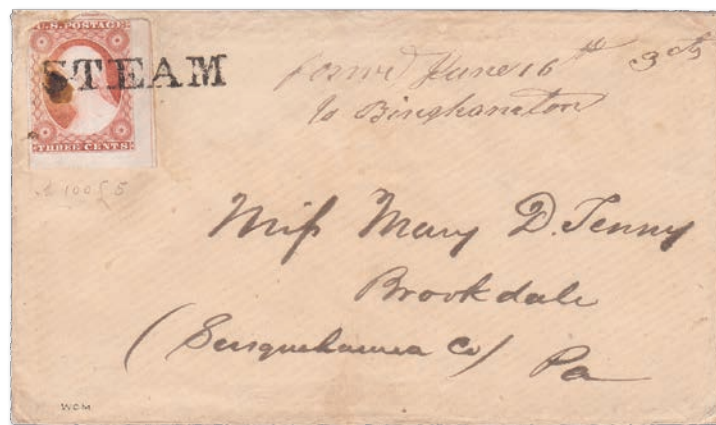 U.S. POSTAGE
STEAM
THREE CENTS
Forwd June 16th 3 cts
to Binghamton
Miss Mary D. Tenny
Brookdale
(Susquehanna Co) Pa
WCM